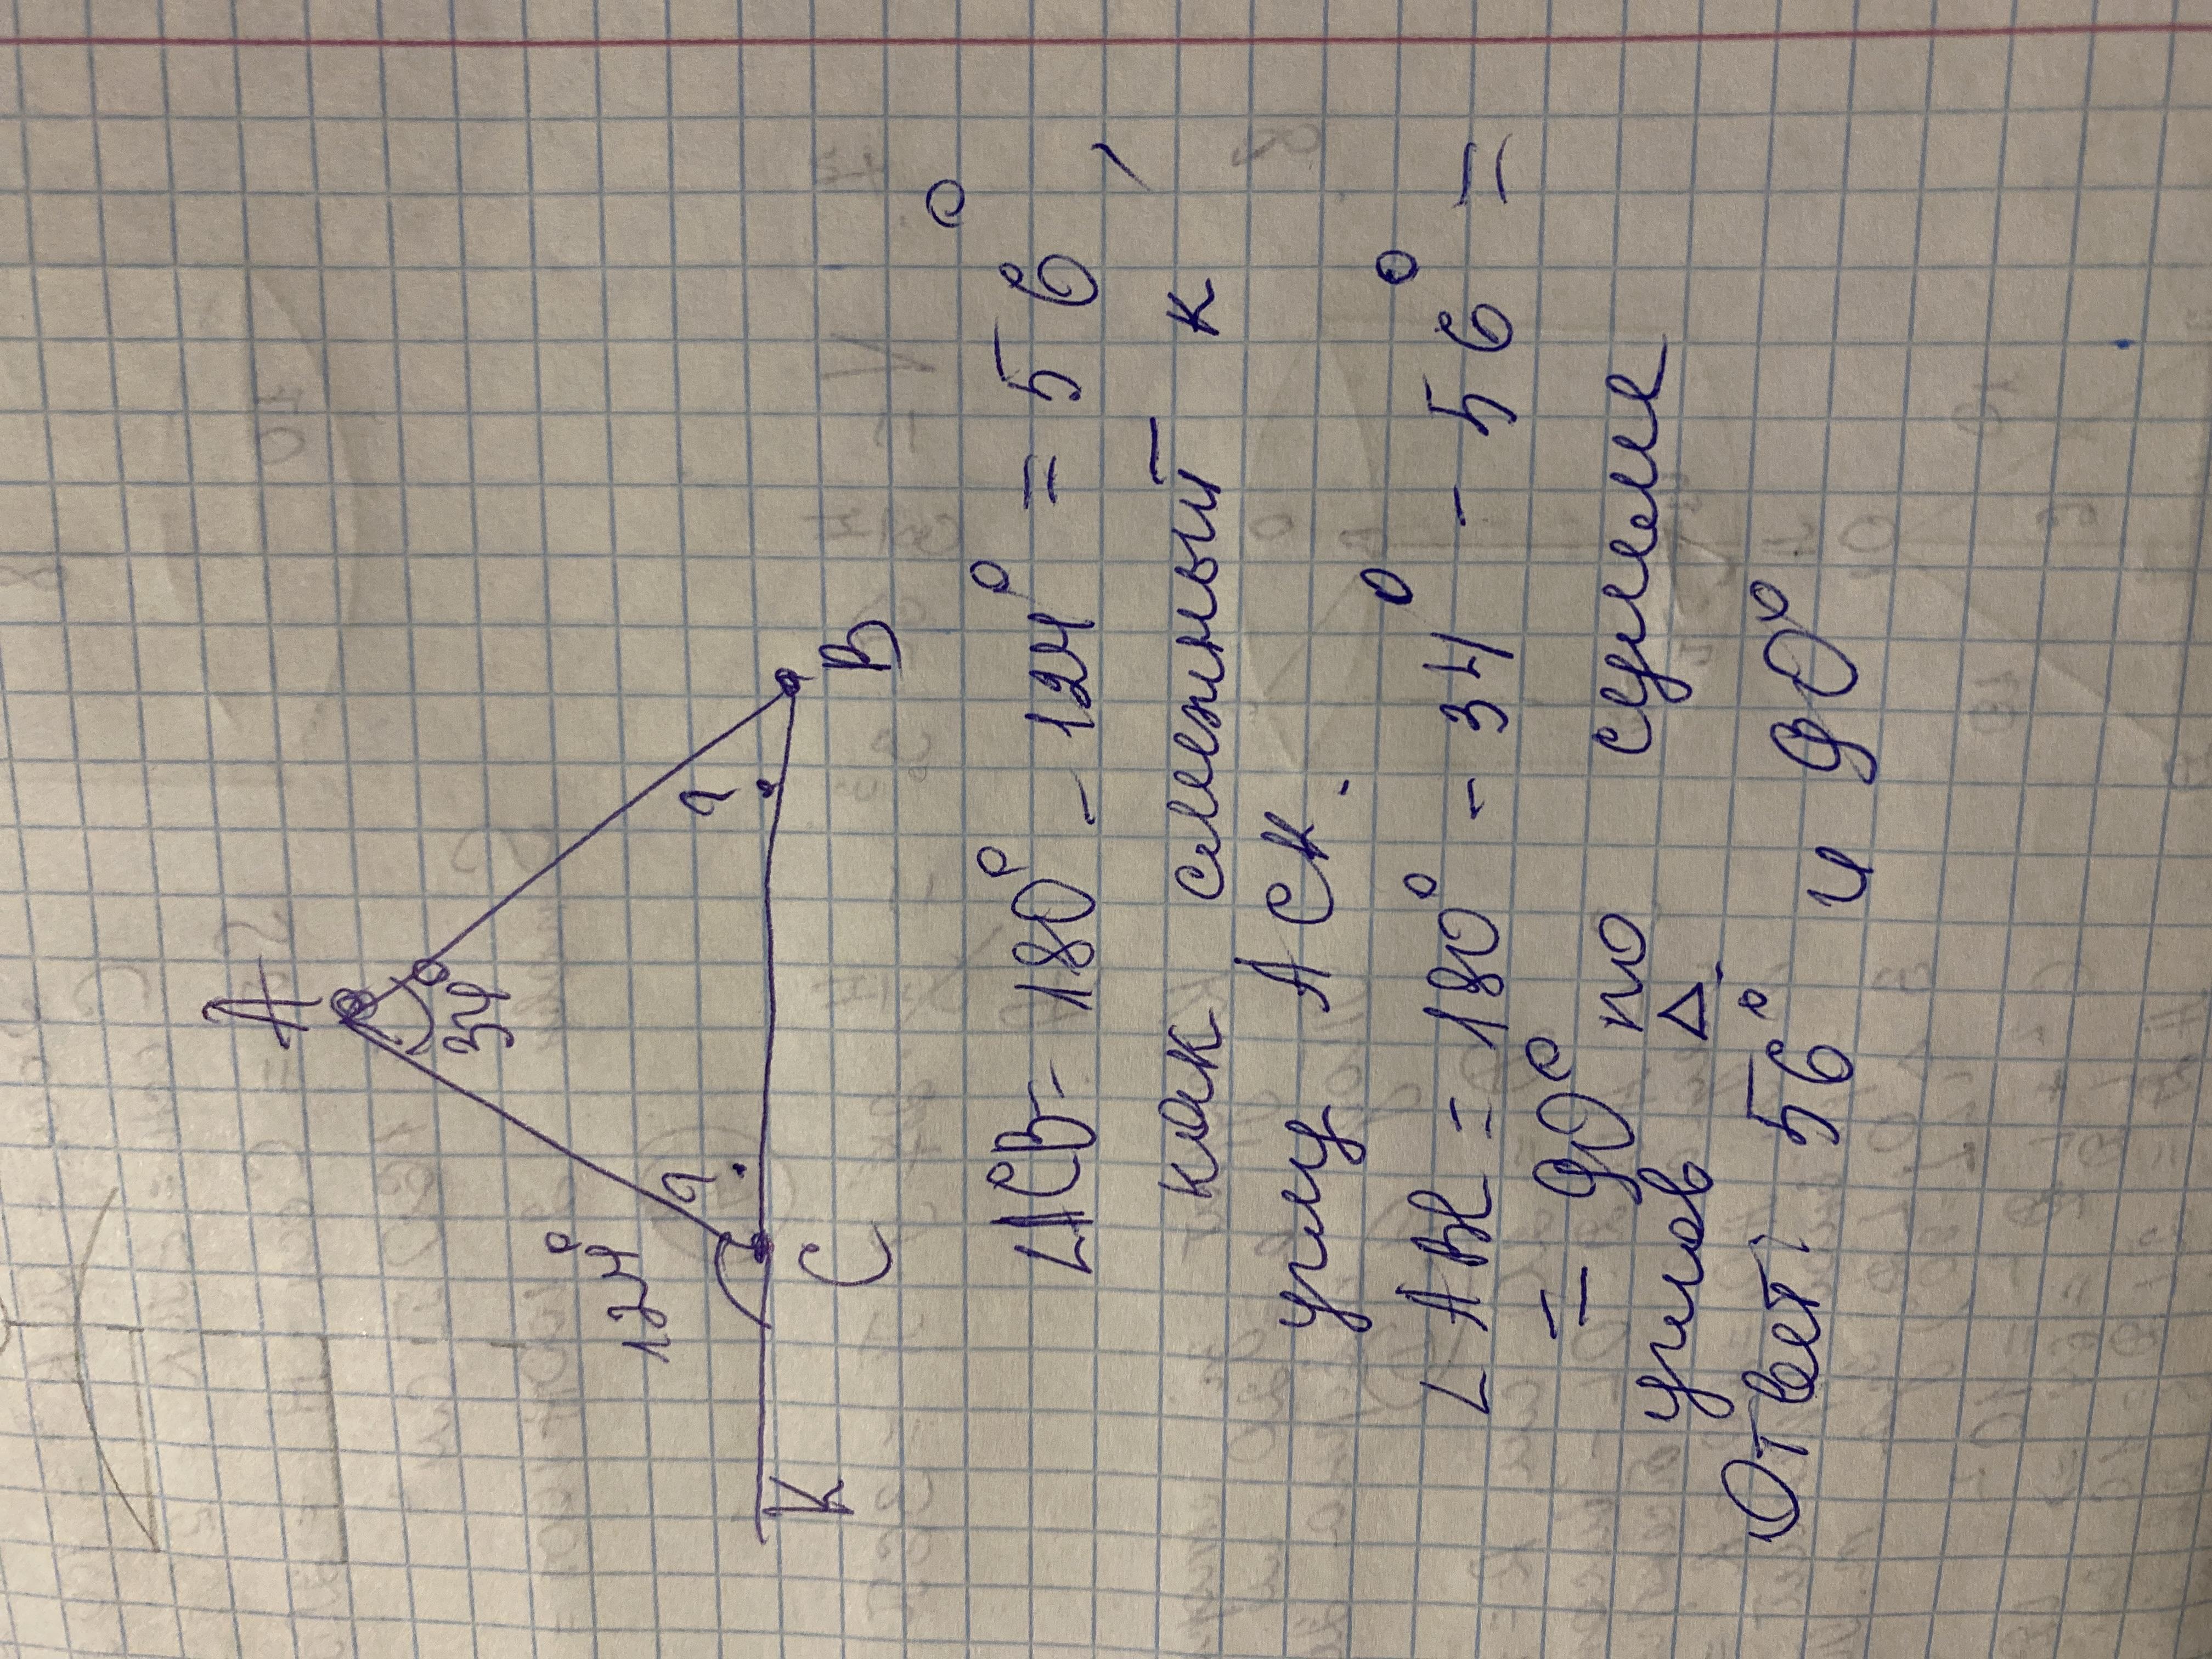 A
34°
124°
?
?
К
С
В
∠АСВ- 180° - 124° = 56°,
как смежный к
углу АСК.
∠АВС = 180° - 34° - 56° =
= 90° по сумме
углов Δ.
Ответ: 56° и 90°